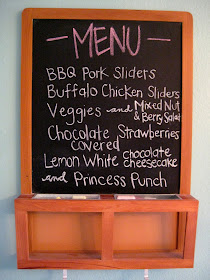 - MENU -
BBQ Pork Sliders
Buffalo Chicken Sliders
Veggies and Mixed Nut & Berry Salad
Chocolate covered Strawberries
Lemon White chocolate cheesecake
and Princess Punch